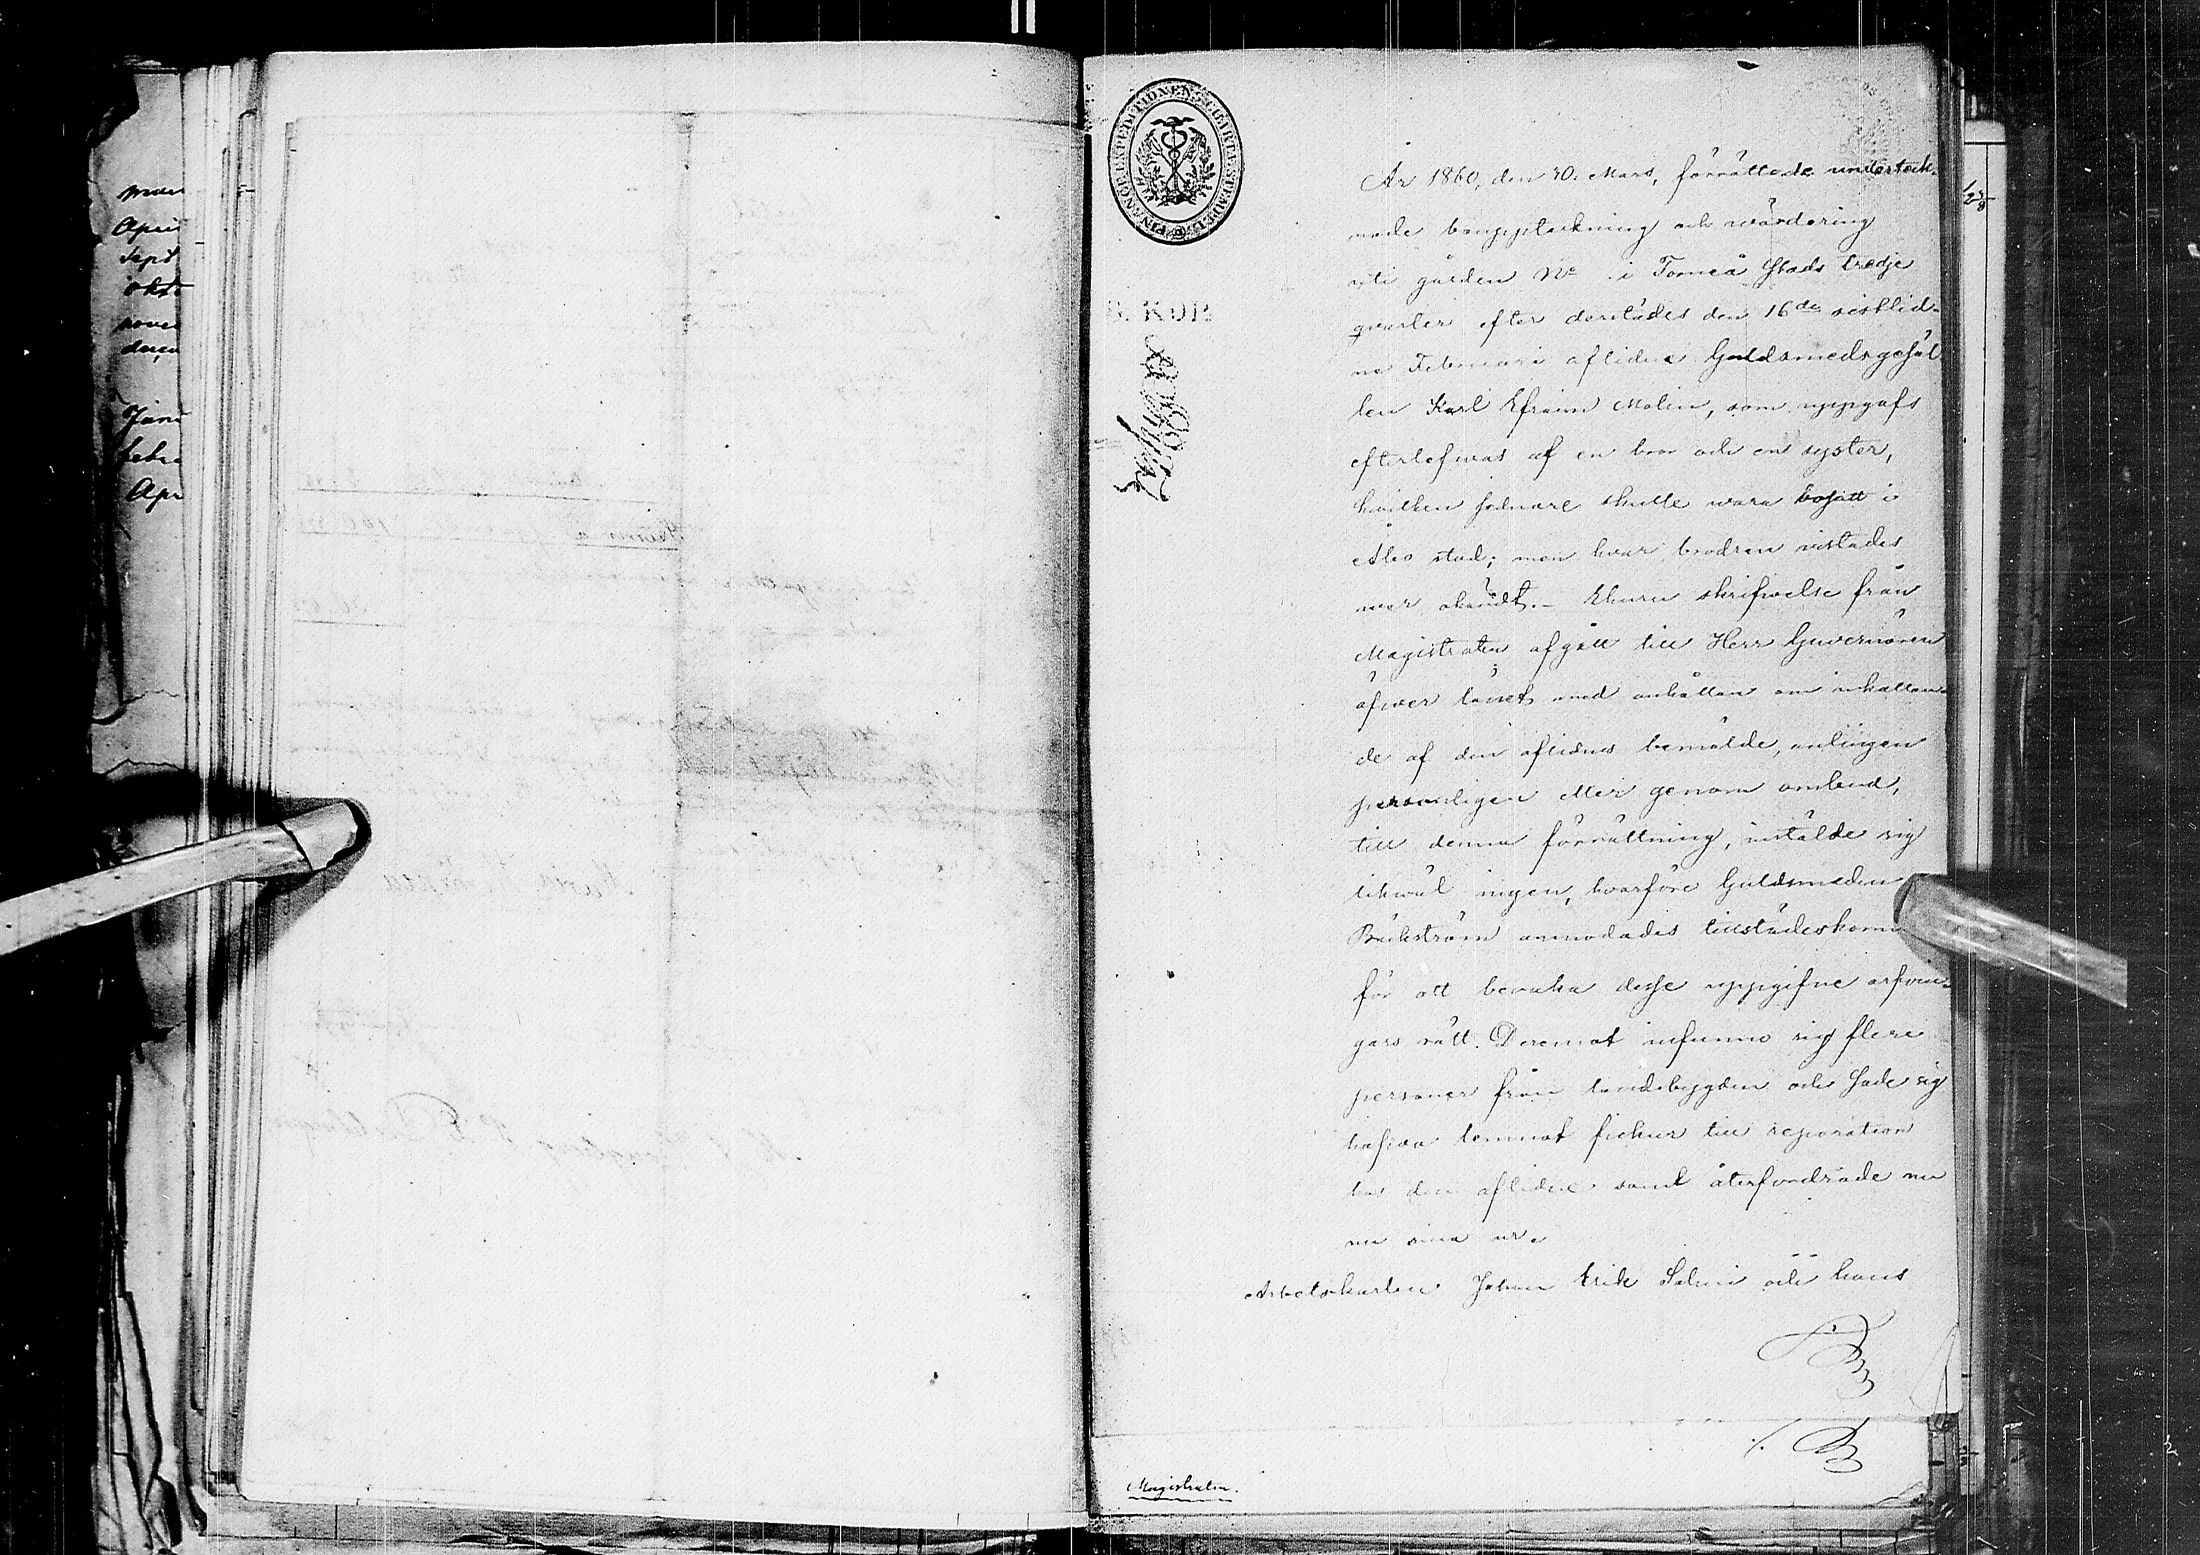 mars
April
Sept
okto
nove
decem
Janu
febr
Apr
FINANCE EXPEDITIONENS CHARTÆ STEMPEL
KOP.
År 1860, den 30 Mars, förrättade underteck-
nade bouppteckning och wärdering
uti gården No i Torneå Stads tredje
qvarter efter derstädes den 16de sistlid-
ne Februari aflidne Guldsmedsgesäl
len Karl Efraim Molin, som uppgafs
efterlefwas af en bror och en syster,
hvilken sednare skulle wara bosatt i
Åbo stad; men hvar brodren vistades
war okändt. Ehuru skrifwelse från
Magistraten afgått till Herr Guvernören
öfwer länet med anhållan om inkallan-
de af den aflidnes bemälde, antingen
personligen eller genom ombud,
till denna förrättning, instälde sig
likwäl ingen, hvarföre Guldsmeden
Bäckström anmodades tillstädeskom
för att bevaka desse uppgifne arfvin-
gars rätt. Deremot infunno sig flere
personer från landsbygden och sade sig
hafwa lemnat fickur till reparation
hos den aflidne samt återfordrade nu
nu sina ur.
Arbetskarlen Johan Erik Salmi och hans
Magistraten.